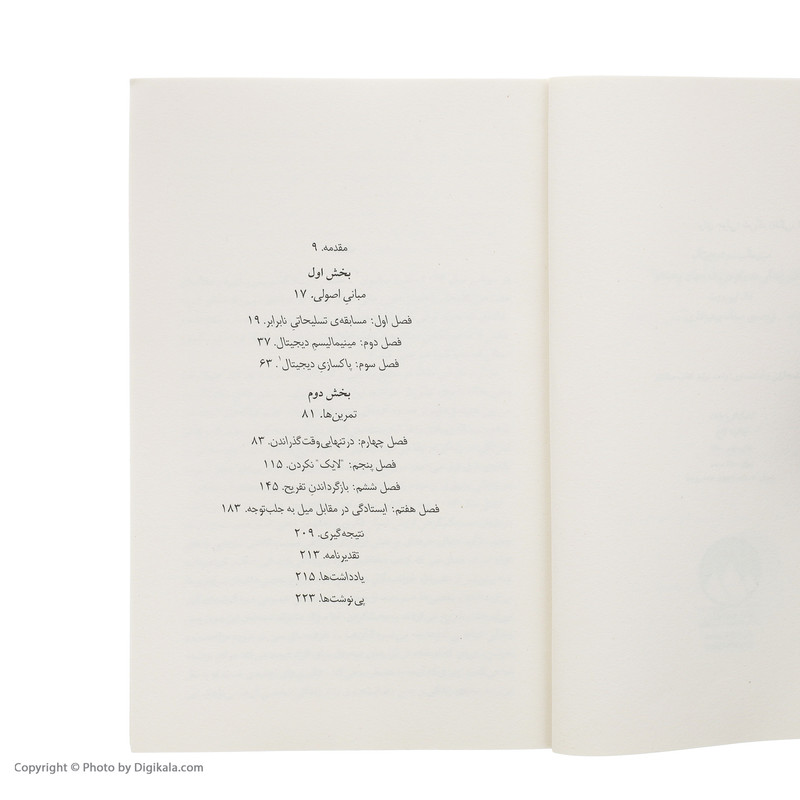 مقدمه. ۹
بخش اول
مبانیِ اصولی. ۱۷
فصل اول: مسابقه‌ی تسلیحاتیِ نابرابر. ۱۹
فصل دوم: مینیمالیسمِ دیجیتال. ۳۷
فصل سوم: پاکسازیِ دیجیتال۱. ۶۳
بخش دوم
تمرین‌ها. ۸۱
فصل چهارم: در تنهایی وقت گذراندن. ۸۳
فصل پنجم: "لایک" نکردن. ۱۱۵
فصل ششم: بازگرداندنِ تفریح. ۱۴۵
فصل هفتم: ایستادگی در مقابل میل به جلب‌توجه. ۱۸۳
نتیجه‌گیری. ۲۰۹
تقدیرنامه. ۲۱۳
یادداشت‌ها. ۲۱۵
پی‌نوشت‌ها. ۲۲۳
Copyright © Photo by Digikala.com